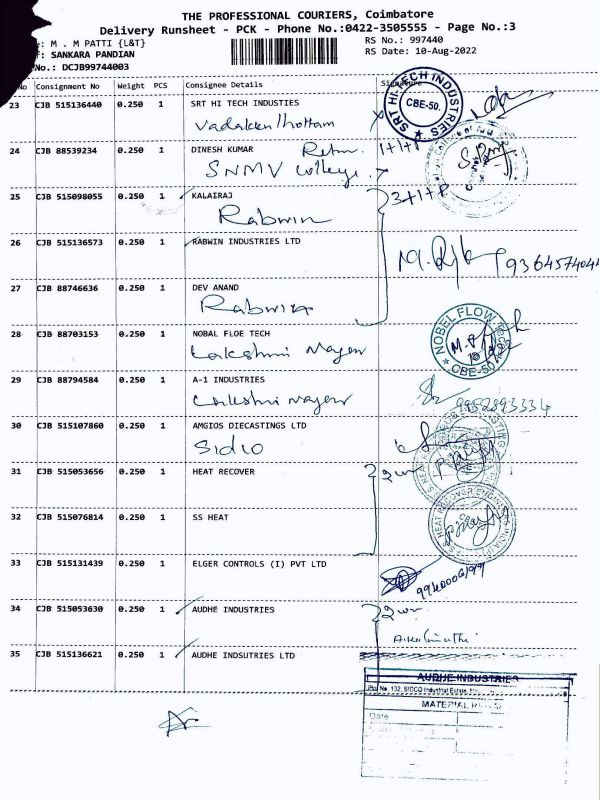 THE PROFESSIONAL COURIERS, Coimbatore
Delivery Runsheet - PCK - Phone No.:0422-3505555 - Page No.:3
: M . M PATTI {L&T}
RS No.: 997440
: SANKARA PANDIAN
RS Date: 10-Aug-2022
No.: DCJB99744003
No Consignment No Weight PCS Consignee Details Signature
23 CJB 515136440 0.250 1 SRT HI TECH INDUSTIES
SRT HI-TECH INDUSTRIES
CBE-50.
Vadakkuthottam
24 CJB 88539234 0.250 1 DINESH KUMAR Retn. 1+1+P
SNMV College
25 CJB 515098055 0.250 1 KALAIRAJ 3+1+P
Rabwin
26 CJB 515136573 0.250 1 RABWIN INDUSTRIES LTD
27 CJB 88746636 0.250 1 DEV ANAND
Rabwin
28 CJB 88703153 0.250 1 NOBAL FLOE TECH
Lakshmi Nagar
NOBEL FLOW
CBE-50.
29 CJB 88794584 0.250 1 A-1 INDUSTRIES
Lakshmi Nagar
9952893334
30 CJB 515107860 0.250 1 AMGIOS DIECASTINGS LTD
Sidio
31 CJB 515053656 0.250 1 HEAT RECOVER
32 CJB 515076814 0.250 1 SS HEAT
33 CJB 515131439 0.250 1 ELGER CONTROLS (I) PVT LTD
34 CJB 515053630 0.250 1 AUDHE INDUSTRIES
35 CJB 515136621 0.250 1 AUDHE INDSUTRIES LTD
AUDHE INDUSTRIES
No. 132, SIDCO Industrial Estate,
MATERIAL
Date